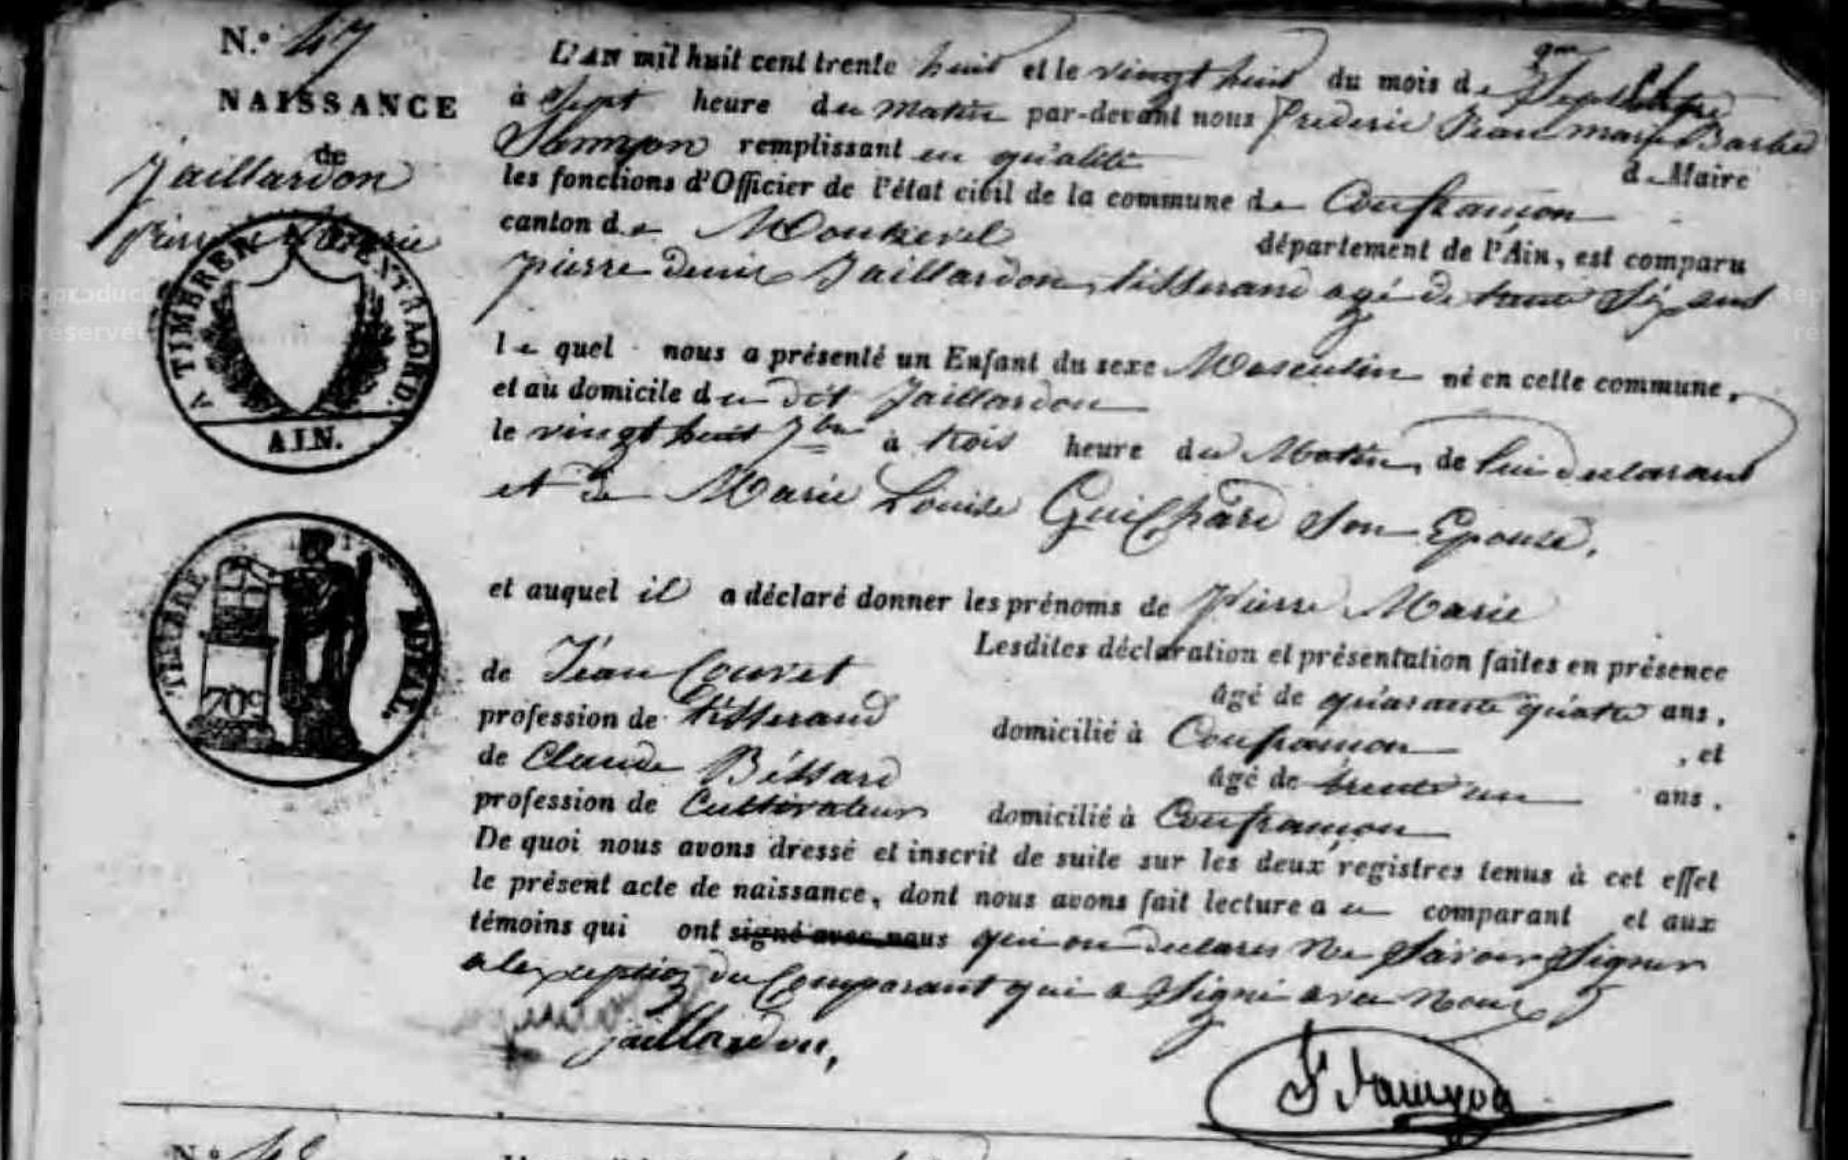 N.º 47
NAISSANCE
de
Jaillardon
Pierre Marie
A TIMBRER A L'EXTRAORD.
AIN.
TIMBRE ROYAL.
709
L'AN mil huit cent trente huit et le vingt huit du mois de Septembre
à Sept heure du matin par-devant nous frederic Jean marie Barbe
remplissant en qualité de Maire
les fonctions d'Officier de l'état civil de la commune de Confrançon
canton de Montrevel département de l'Ain, est comparu
pierre denis Jaillardon, tisserand agé de trente Six ans
le quel nous a présenté un Enfant du sexe Masculin né en celle commune,
et au domicile du dit Jaillardon
le vingt huit 7bre à trois heure du Matin, de lui declarant
et de Marie Louise Guichard Son Epouse.
et auquel il a déclaré donner les prénoms de Pierre Marie
Lesdites déclaration et présentation faites en présence
de Jean Couvet âgé de quarante quatre ans,
profession de tisserand domicilié à Confrançon, et
de Claude Béssard âgé de trente un ans.
profession de Cultivateur domicilié à Confrançon
De quoi nous avons dressé et inscrit de suite sur les deux registres tenus à cet effet
le présent acte de naissance, dont nous avons fait lecture a u comparant et aux
témoins qui ont signé avec nous qui on declarés ne Savoir Signer
a lexception du Comparant qui a Signé avec Nous
jaillardon,
N.º 48